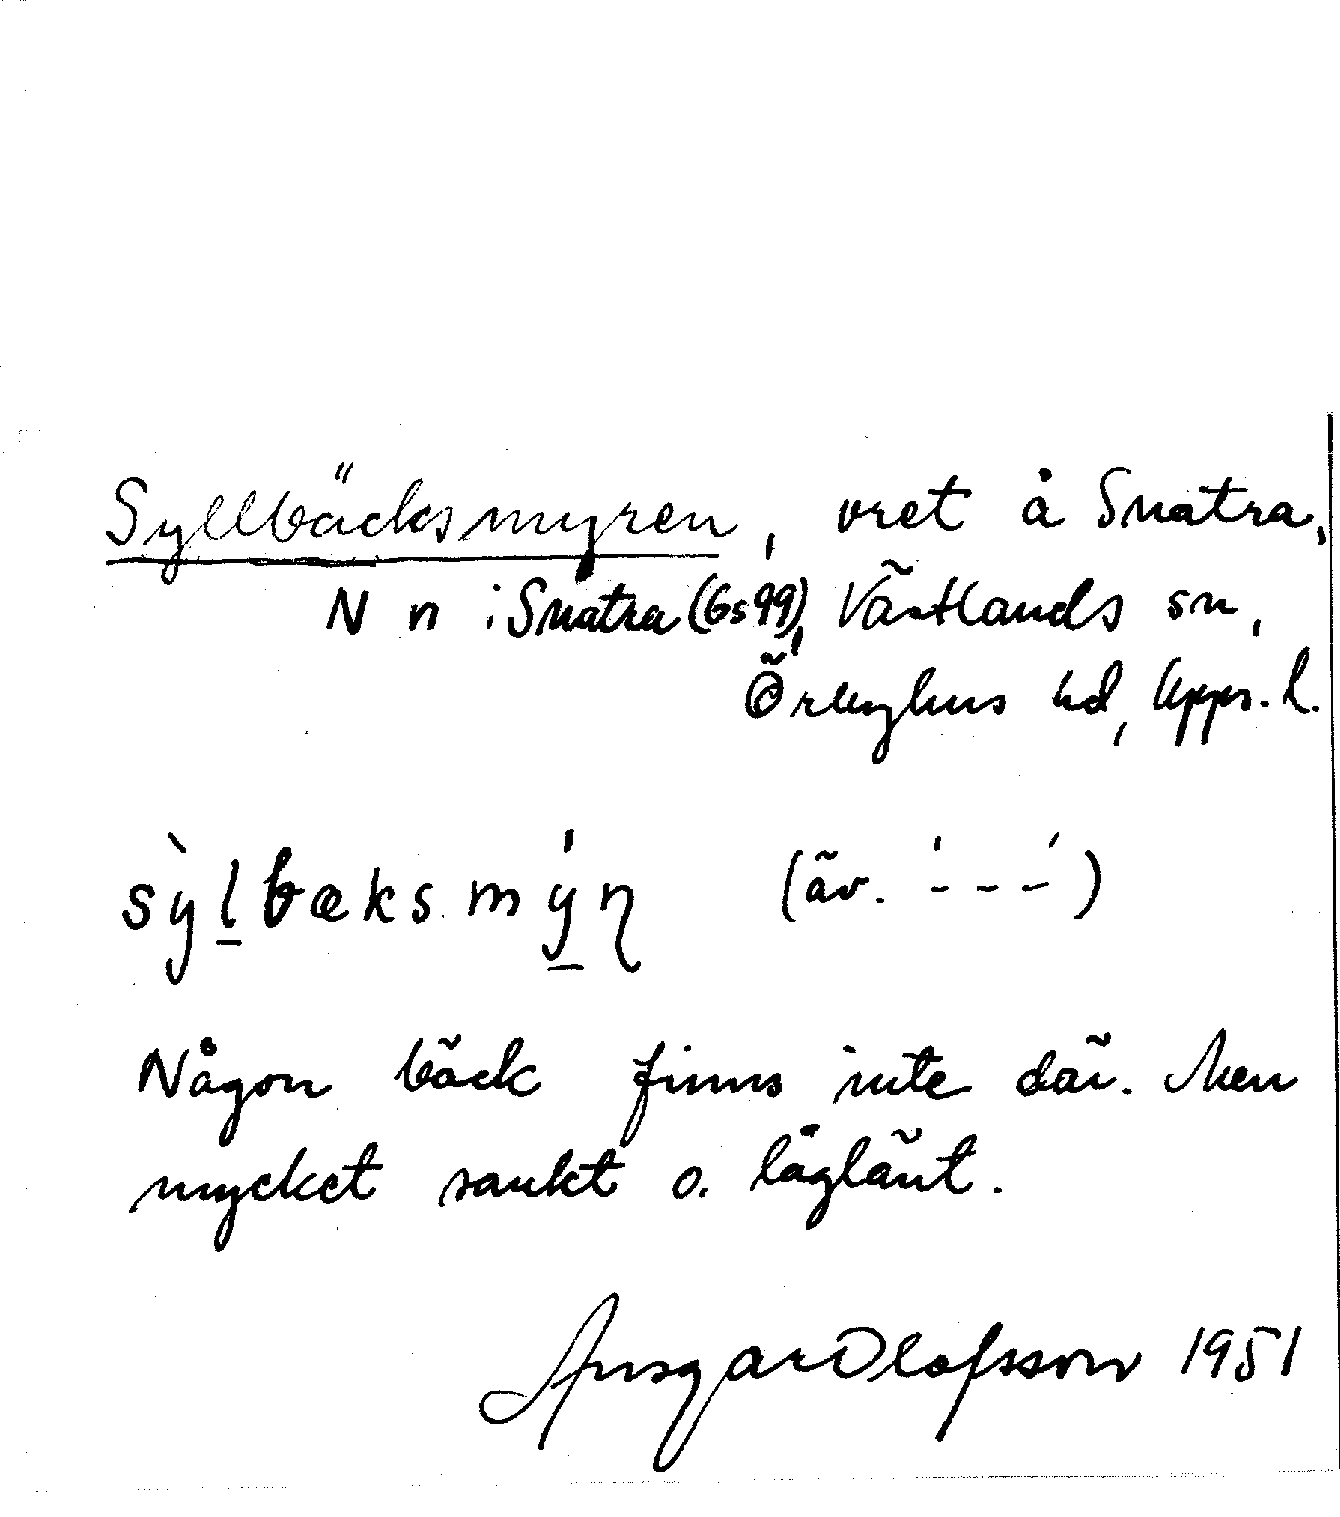 Syllbäcksmyren, vret å Snatra,
N n i Snatra (Gs 99), Västlands sn,
Örbyhus hd, Upps. l.
sỳl̲bæksmý̲ɳ (äv. ´- - -´)
Någon bäck finns inte där. Men
mycket sankt o. låglänt.
Ansgar Olofsson 1951